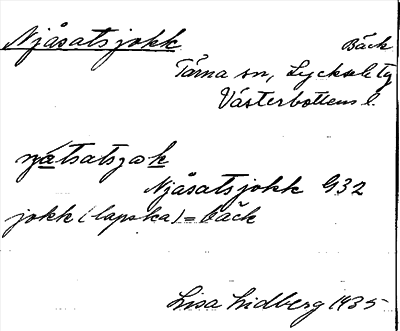 Njåsatsjokk Bäck
Tärna sn, Lycksele tg
Västerbottens l.
Njåsatsjokk G32
jokk (lapska) = bäck
Lisa Lidberg 1935